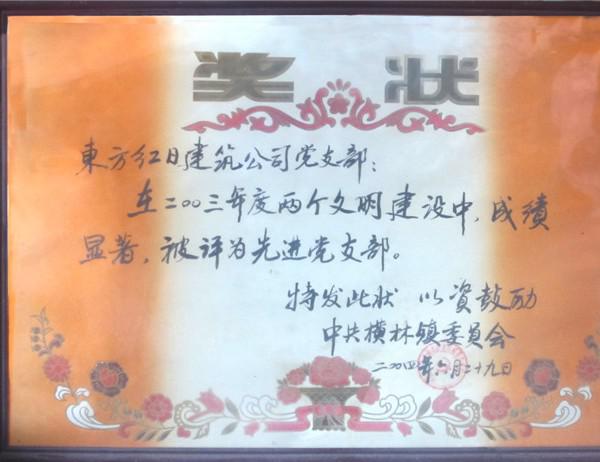 奖状
東方红日建筑公司党支部：
在二00三年度两个文明建设中，成绩
显著，被评为先进党支部。
特发此状 以资鼓励
中共横林镇委员会
二00四年六月二十九日